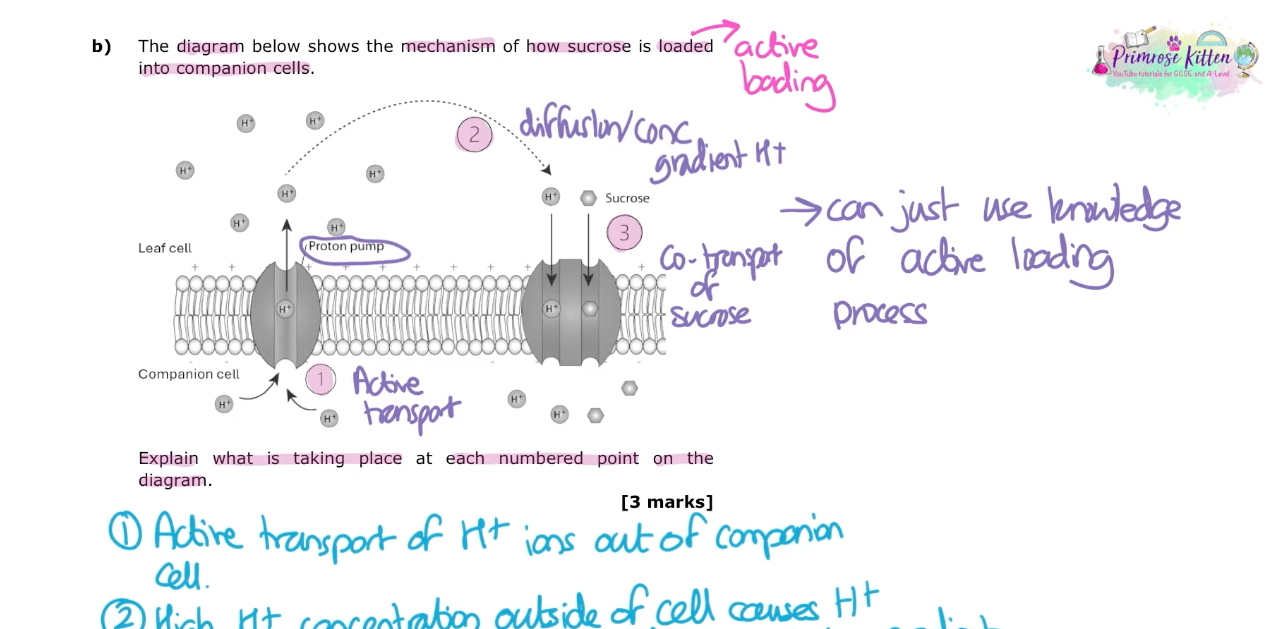 b) The diagram below shows the mechanism of how sucrose is loaded
into companion cells.
active
loading
Primrose Kitten
YouTube tutorials for GCSE and A-Level
H+
H+
2
diffusion/conc
gradient H+
H+
H+
H+
H+
Sucrose
→ can just use knowledge
of active loading
process
H+
H+
3
Leaf cell
Proton pump
Co-transport
of
sucrose
+ + + + + + + +
H+
H+
Companion cell
1
Active
transport
H+
H+
H+
H+
Explain what is taking place at each numbered point on the
diagram.
[3 marks]
① Active transport of H+ ions out of companion
cell.
② High H+ concentration outside of cell causes H+